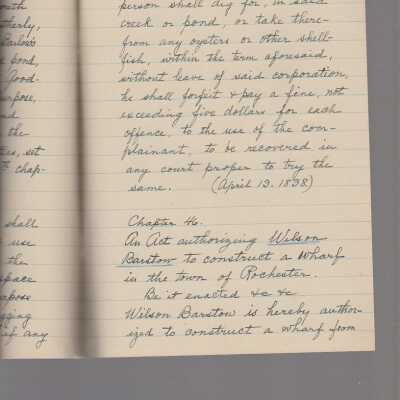 outh
therly,
Barlow's
pond,
Good-
urpose,
nd
the
ties, set
chap-
shall
use
then
space
apose
gging
of any
person shall dig for, in said
creek or pond, or take there-
from any oysters or other shell-
fish, within the term aforesaid,
without leave of said corporation,
he shall forfeit & pay a fine, not
exceeding five dollars for each
offence, to the use of the com-
plainant, to be recovered in
any court proper to try the
same. (April 13. 1838)
Chapter 46.
An Act authorizing Wilson
Barstow to construct a Wharf
in the town of Rochester.
Be it enacted &c &c
Wilson Barstow is hereby author-
ized to construct a wharf from